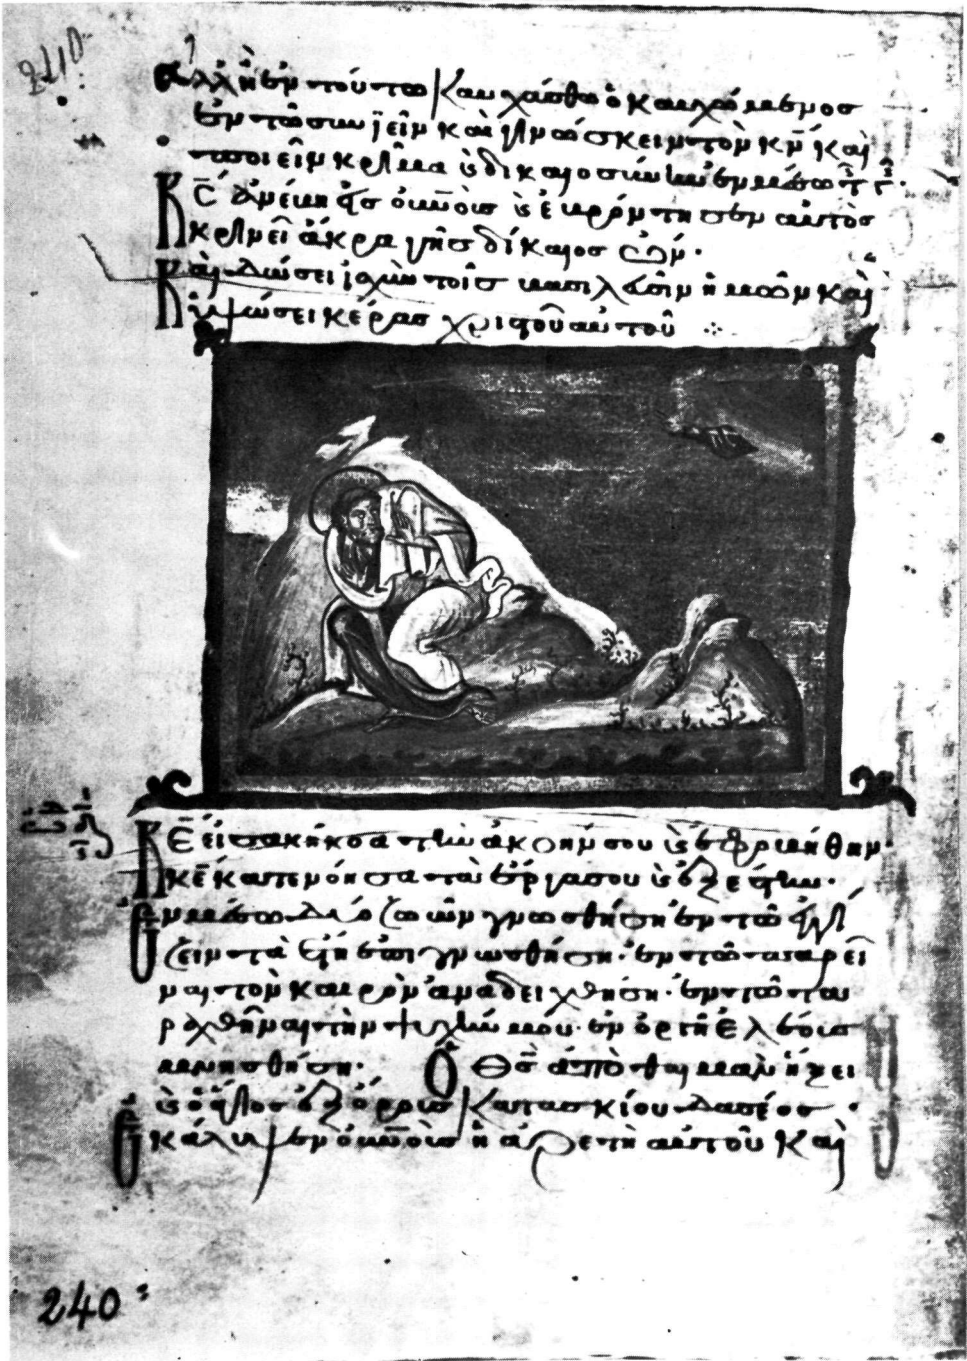 240
ἀλλ' ἢ ἐν τούτω καυχάσθω ὁ καυχώμενος
ἐν τῶ συνιεῖν καὶ γινώσκειν τὸν κν καὶ
ποιεῖν κρίμα καὶ δικαιοσύνην ἐν μέσω τῆς γῆς.
Κς ἀνέβη εἰς οὐνοὺς καὶ ἐβρόντησεν αὐτὸς
κρινεῖ ἄκρα γῆς δίκαιος ὤν.
Καὶ δώσει ἰσχὺν τοῖς βασιλεῦσιν ἡμῶν καὶ
ὑψώσει κέρας χριστοῦ αὐτοῦ
Κε εἰσακήκοα τὴν ἀκοήν σου καὶ ἐφοβήθην.
κε κατενόησα τὰ ἔργα σου καὶ ἐξέστην.
ἐν μέσω δύο ζώων γνωσθήση ἐν τῶ ἐγγί
ζειν τὰ ἔτη ἐπιγνωσθήση. ἐν τῶ παρεῖ
ναι τὸν καιρὸν ἀναδειχθήση. ἐν τῶ τα
ραχθῆναι τὴν ψυχήν μου. ἐν ὀργῆ ἐλέους
μνησθήση. Ὁ Θς ἀπὸ θαιμὰν ἥξει
καὶ ὁ ἅγιος ἐξ ὄρους κατασκίου δασέος
ἐκάλυψεν οὐνοὺς ἡ ἀρετὴ αὐτοῦ καὶ
240